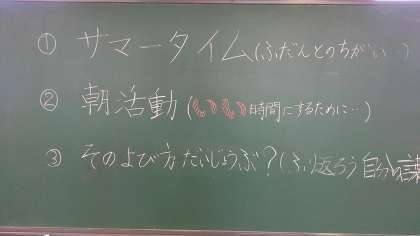 ① サマータイム(ふだんとのちがい…)
② 朝活動(いい時間にするために…)
③ そのよび方だいじょうぶ?(ふり返ろう自分の